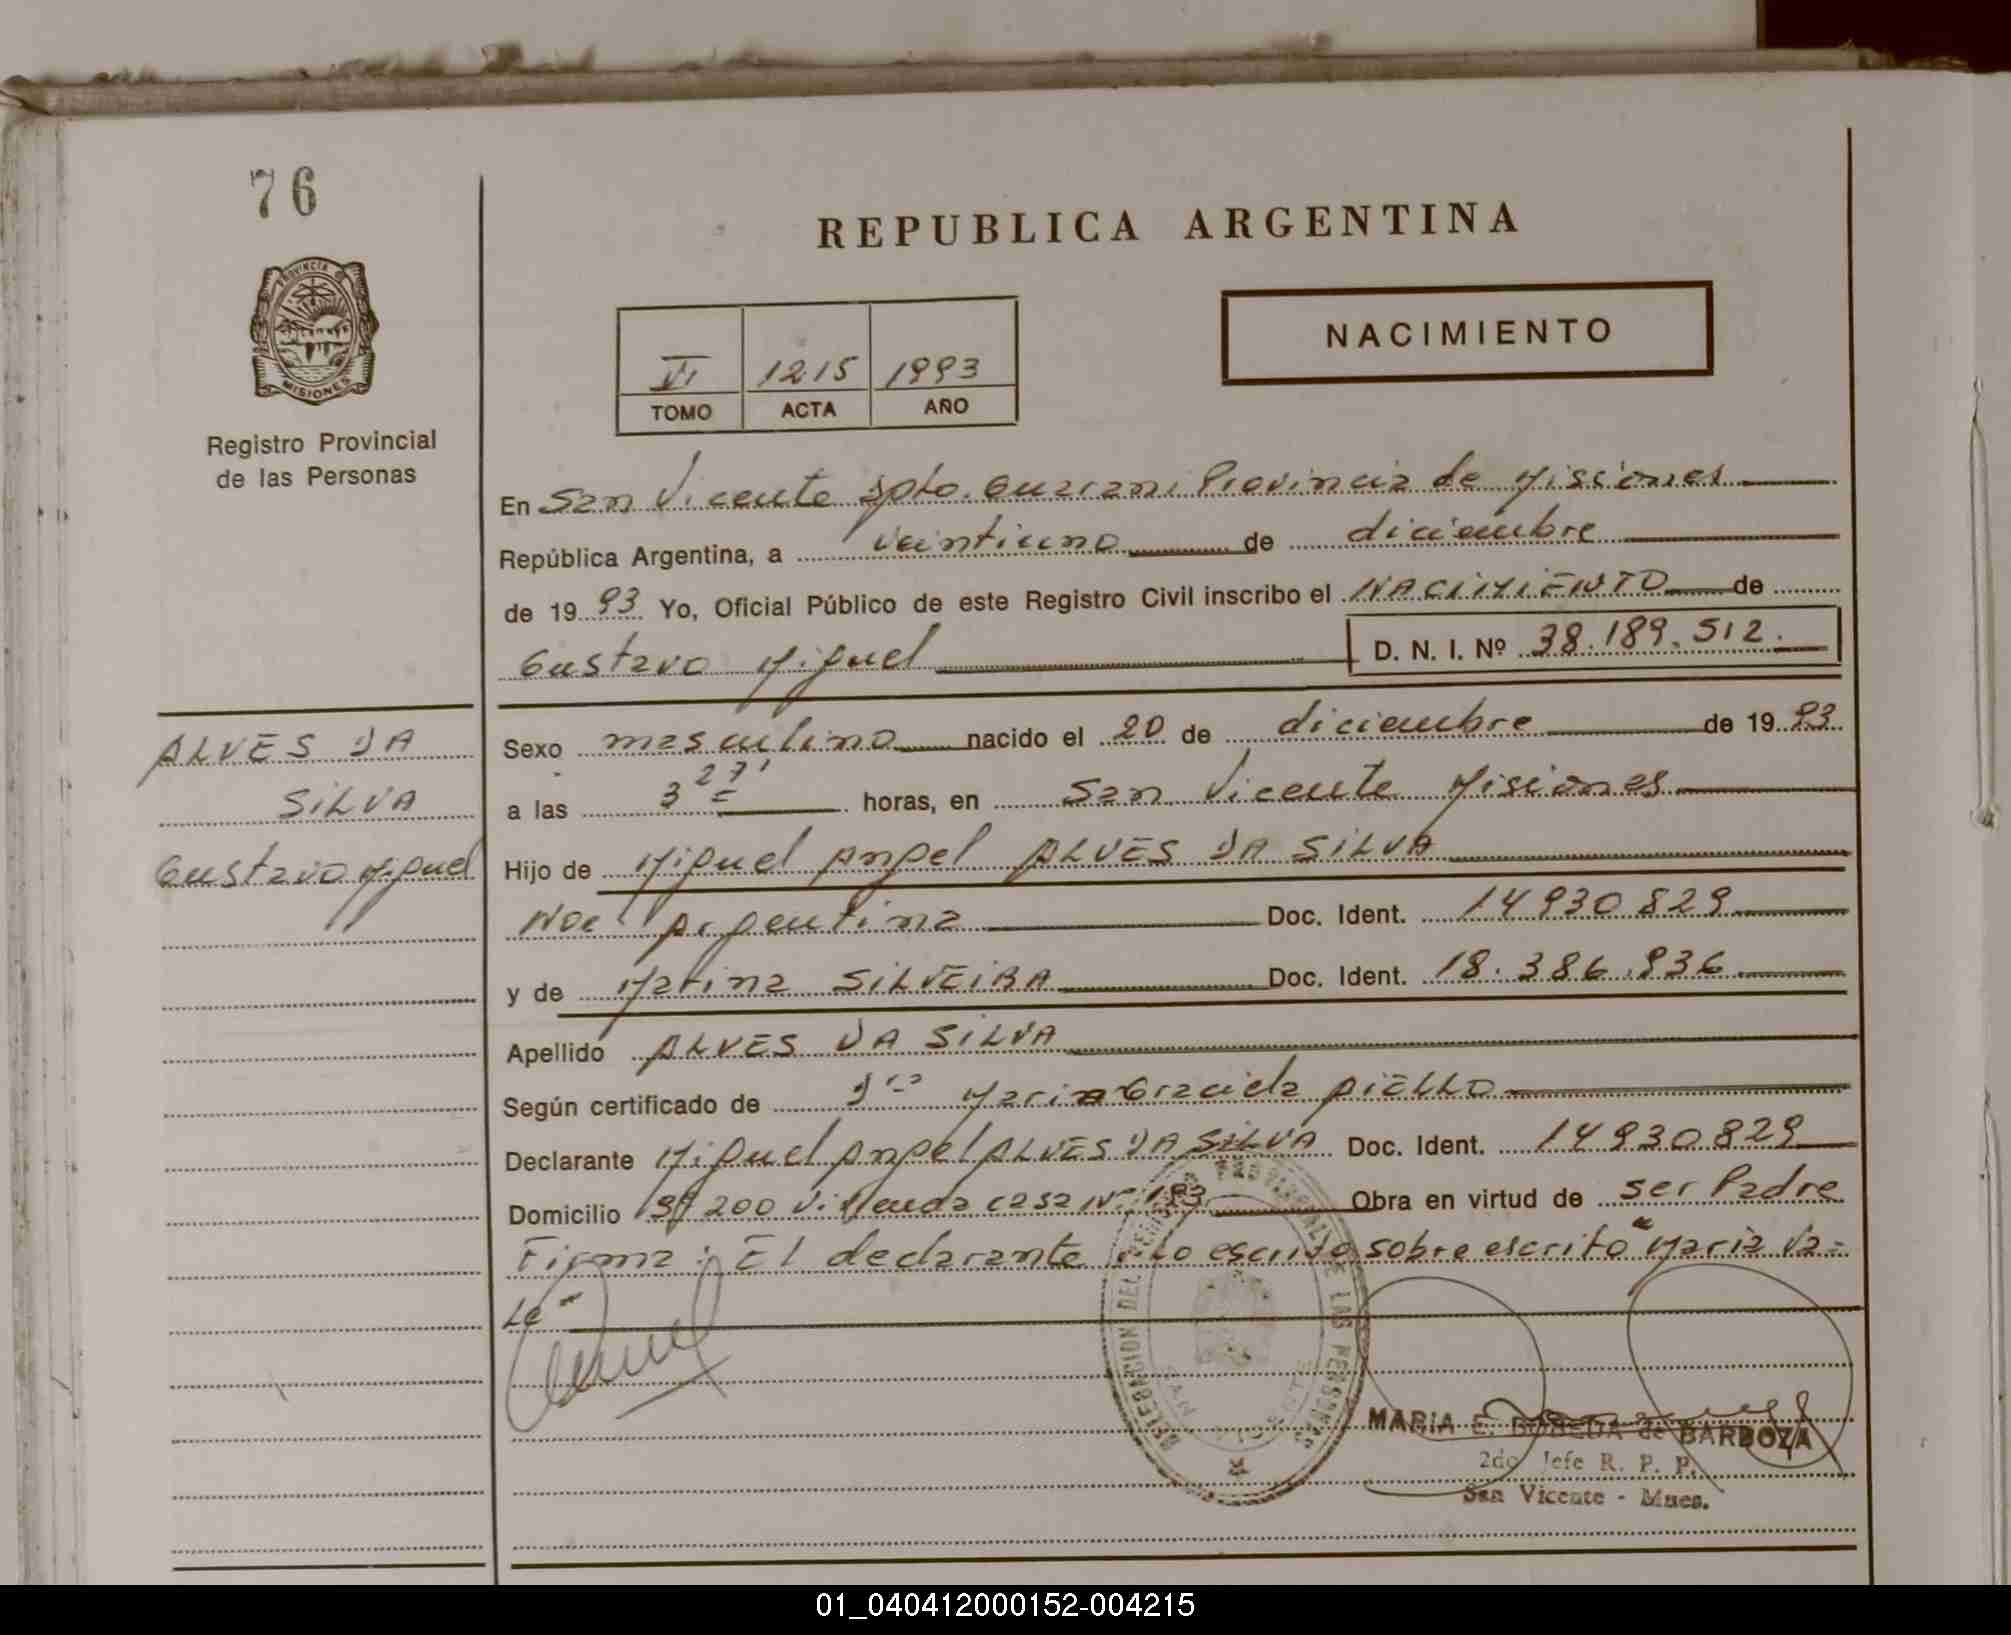 76
REPUBLICA ARGENTINA
PROVINCIA DE
MISIONES
Registro Provincial
de las Personas
VI 1215 1993
TOMO ACTA AÑO
NACIMIENTO
En San Vicente Dpto. Guarani Provincia de Misiones
República Argentina, a veintiuno de diciembre
de 19 93 Yo, Oficial Público de este Registro Civil inscribo el NACIMIENTO de
Gustavo Miguel D. N. I. Nº 38.189.512.
ALVES DA
SILVA
Gustavo Miguel
Sexo masculino nacido el 20 de diciembre de 19 93
a las 3 27' horas, en San Vicente Misiones
Hijo de Miguel Angel ALVES DA SILVA
Nac Argentina Doc. Ident. 14930829
y de Marina SILVEIRA Doc. Ident. 18.386.936
Apellido ALVES DA SILVA
Según certificado de Dra Maria Graciela AIELLO
Declarante Miguel Angel ALVES DA SILVA Doc. Ident. 14930829
Domicilio Bº 200 Vivienda casa Nº 193 Obra en virtud de ser Padre
Firma: El declarante Lo escrito sobre escrito "Maria Va=
Le"
DELEGACION DEL REGISTRO PROVINCIAL DE LAS PERSONAS
SAN VICENTE
MARIA E. de BARBOZA
2do Jefe R. P. P.
San Vicente - Mnes.
01_040412000152-004215